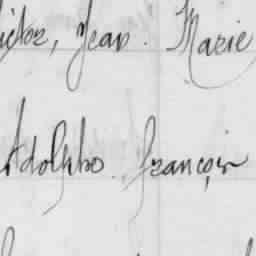 ictor, Jean. Marie
Adolphe. françois